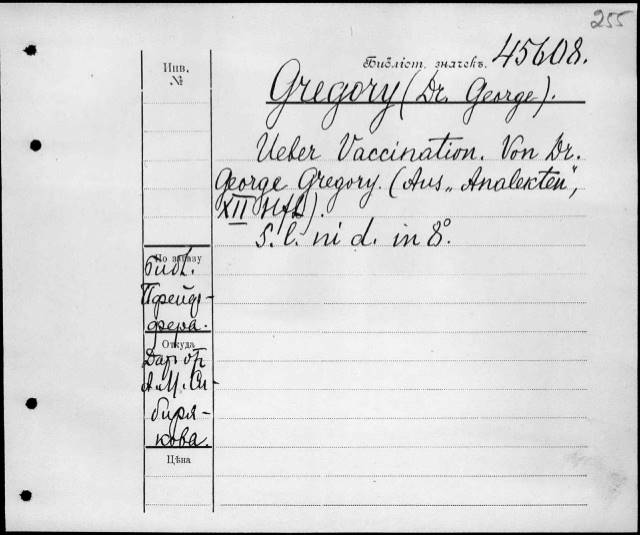 255
Инв.
№
Библіот. значекъ. 45608.
Gregory (Dr. George).
Ueber Vaccination. Von Dr.
George Gregory. (Aus „Analekten",
XII Hft).
S. l. ni d. in 8°.
По заказу
Библ.
Пфейф-
фера.
Откуда
Дар. отъ
А. М. Си-
биря-
кова.
Цѣна